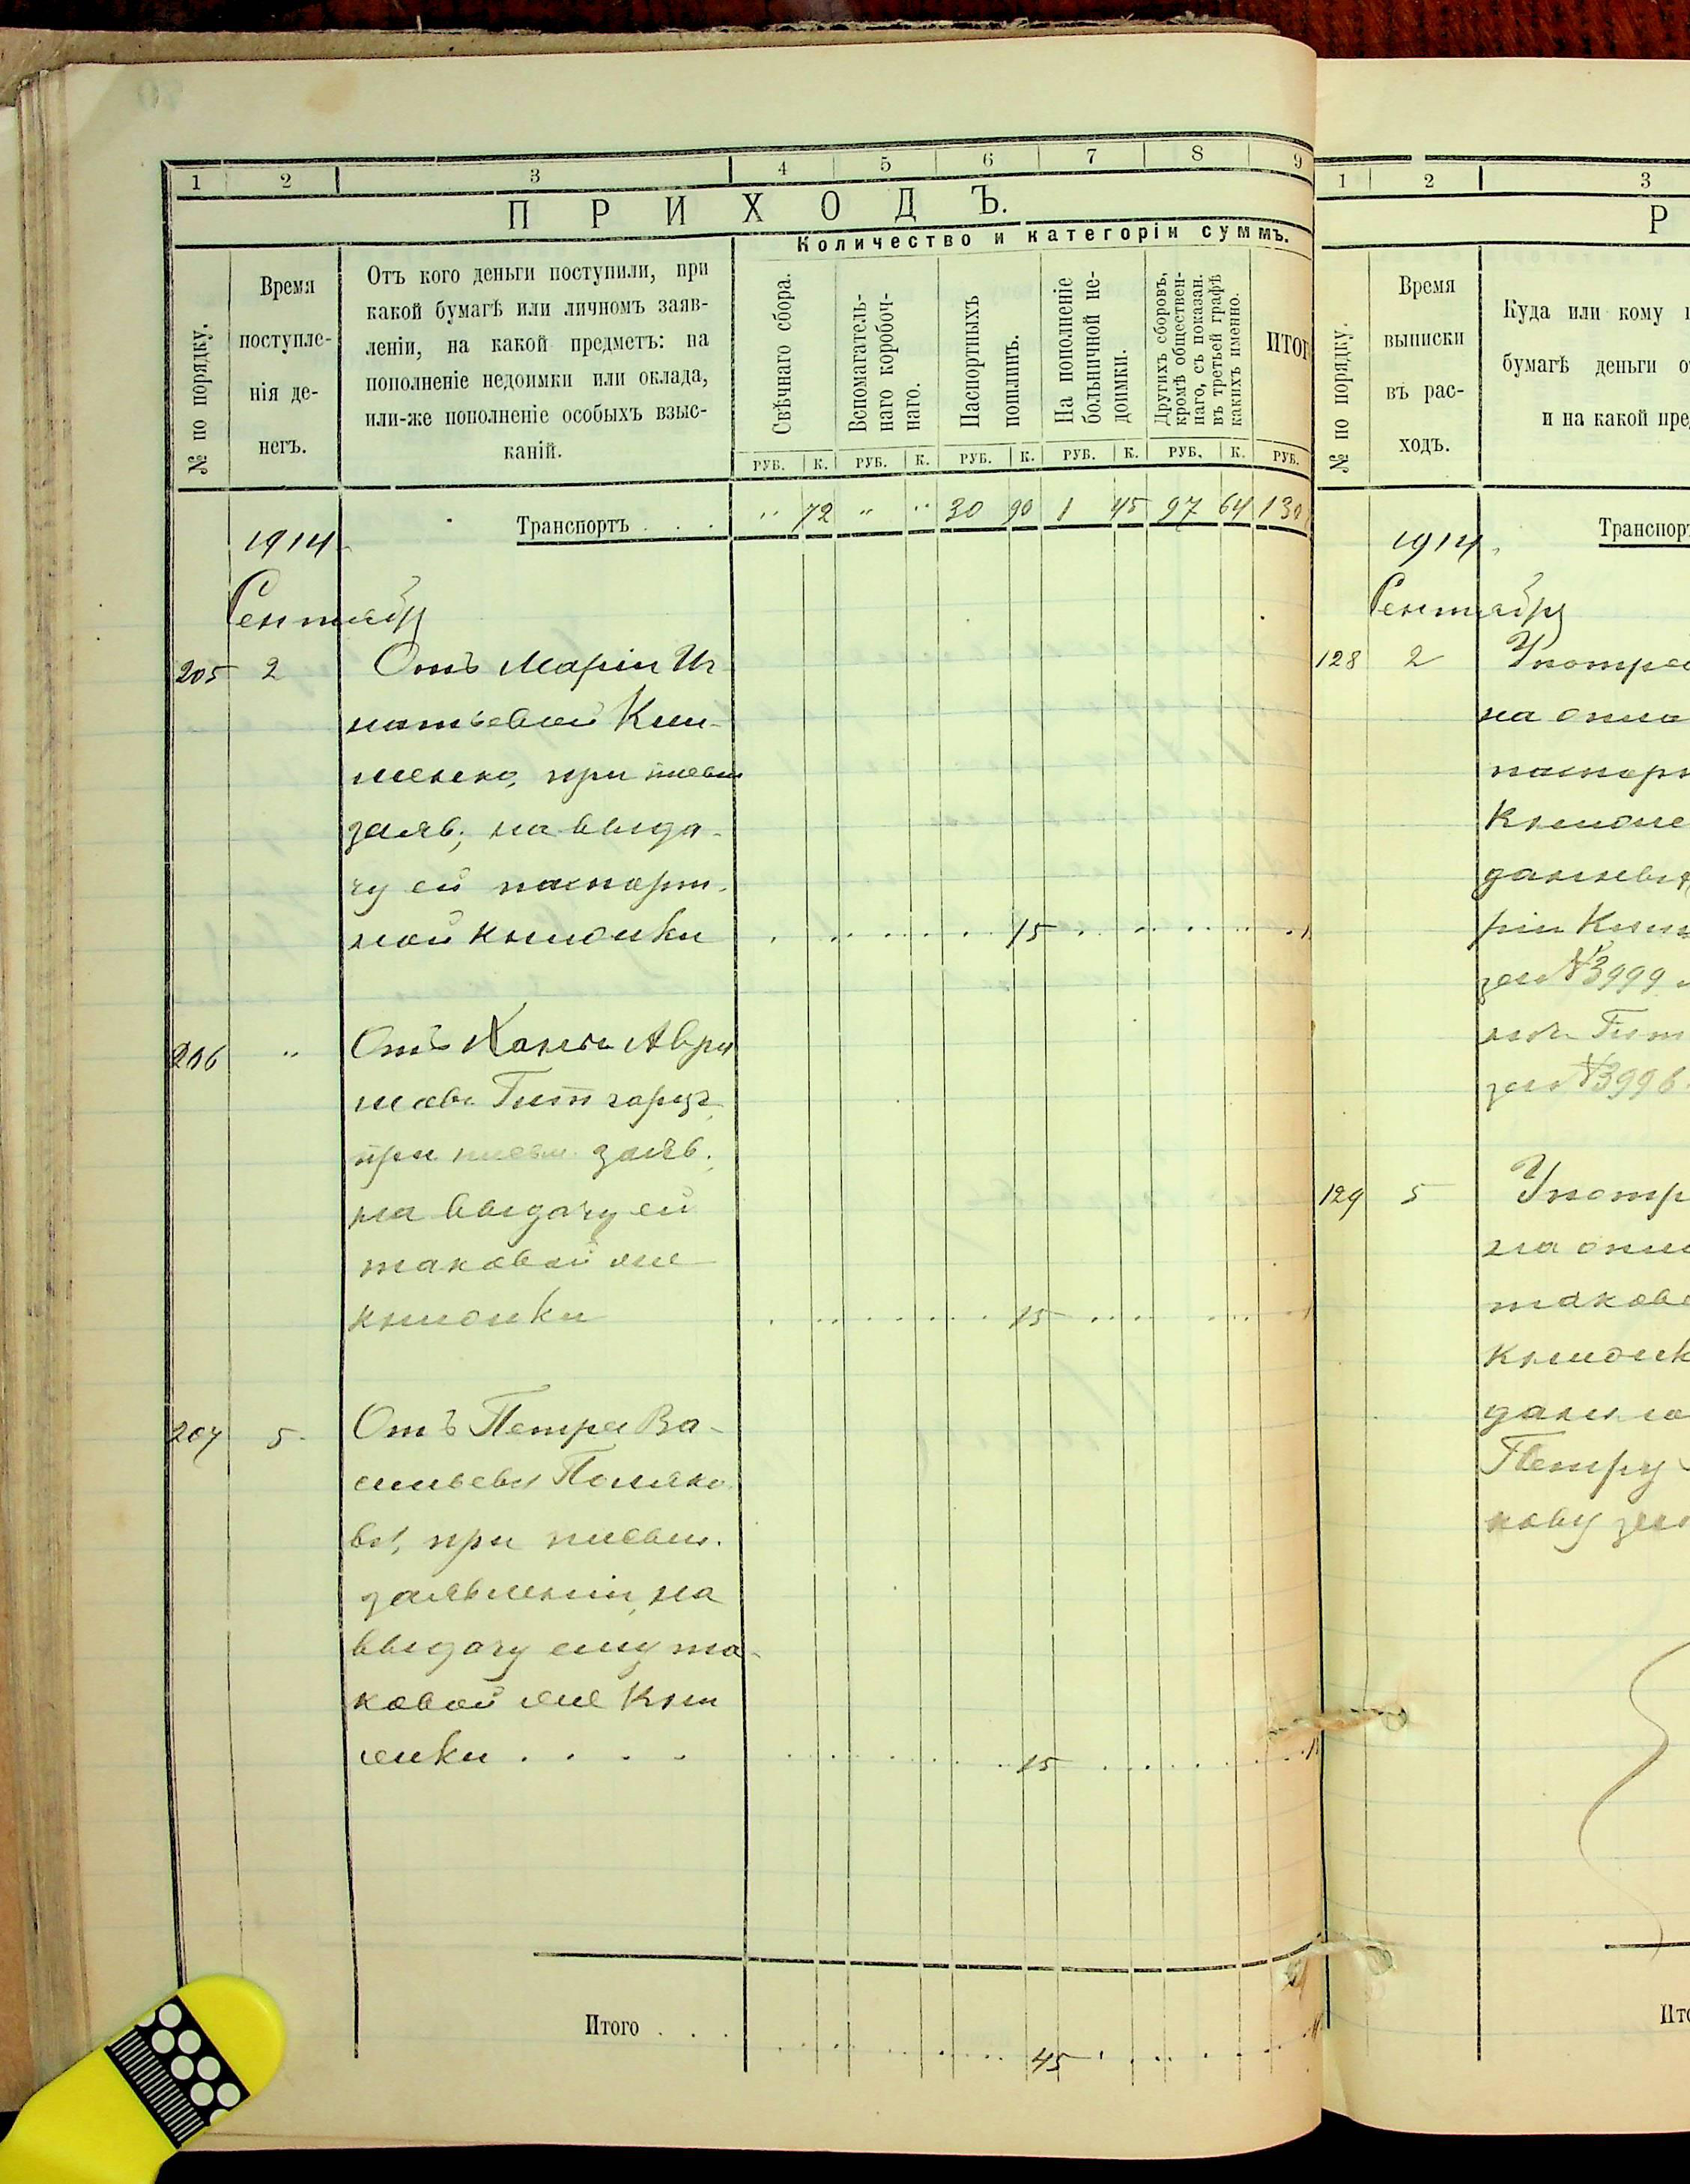 1 2 3 4 5 6 7 8 9
ПРИХОДЪ.
Количество и категоріи суммъ.
№ по порядку.
Время
поступле-
нія де-
негъ.
Отъ кого деньги поступили, при
какой бумагѣ или личномъ заяв-
леніи, на какой предметъ: на
пополненіе недоимки или оклада,
или-же пополненіе особыхъ взыс-
каній.
Свѣчнаго сбора.
Вспомагатель-
наго коробоч-
наго.
Паспортныхъ
пошлинъ.
На пополненіе
больничной не-
доимки.
Другихъ сборовъ,
кромѣ обществен-
наго, съ показан.
въ третьей графѣ
какихъ именно.
ИТОГ
РУБ. К. РУБ. К. РУБ. К. РУБ. К. РУБ. К. РУБ.
Транспортъ . . . " 72 " " 30 90 1 45 97 64 130
1914
Сентябр
205 2 Отъ Маріи Иг
натьевой
при письм
заяв., на выда-
чу ей паспорт-
ной книжки 15
206 " Отъ
при письм. заяв.
на выдачу ей
таковой же
книжки 15
207 5 Отъ Петра Ва-
сильева Поляко
ва, при письм.
заявленіи, на
выдачу ему та-
ковой же кни
жки . . . . 15
Итого . . . 45
1 2 3
Р
№ по порядку.
Время
выписки
въ рас-
ходъ.
Куда или кому
бумагѣ деньги
и на какой пре
Транспор
1914
Сентябр
128 2 Употре
на опла
паспорт
книже
рiи
№3999
№3996
129 5 Употр
на опл
таково
книжк
Петру
кову
Ито